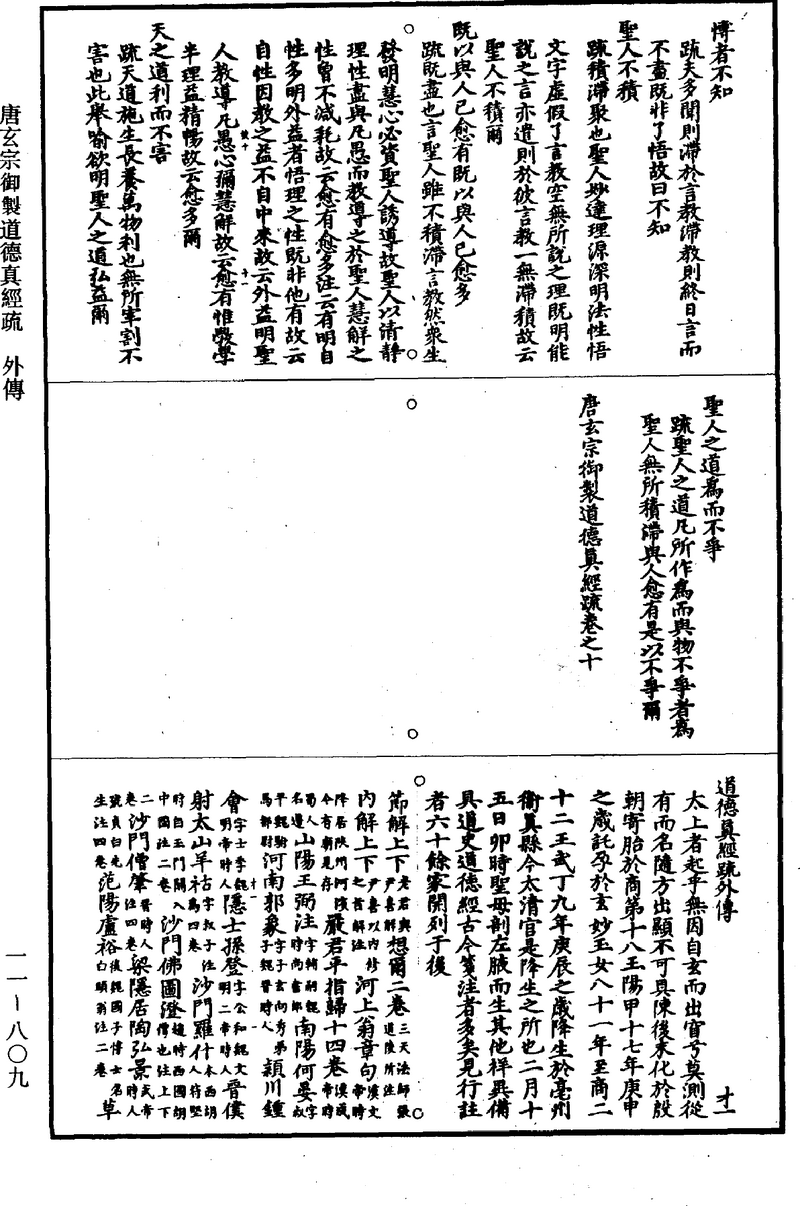 博者不知
疏夫多聞則滯於言教滯教則終日言而
不盡既非了悟故曰不知
聖人不積
疏積滯聚也聖人妙達理源深明法性悟
文字虛假了言教空無所說之理既明能
說之言亦遣則於彼言教一無滯積故云
聖人不積爾
既以與人己愈有既以與人己愈多
疏既盡也言聖人雖不積滯言教然衆生
發明慧心必資聖人誘導故聖人以清靜
理性盡與凡愚而教導之於聖人慧解之
性曾不減耗故云愈有愈多注云有明自
性多明外益者悟理之性既非他有故云
自性因教之益不自中來故云外益明聖
人教導凡愚心彌慧解故云愈有惟斆學
半理益精暢故云愈多爾
天之道利而不害
疏天道施生長養萬物利也無所宰割不
害也此舉喻欲明聖人之道弘益爾
聖人之道爲而不爭
疏聖人之道凡所作爲而與物不爭者爲
聖人無所積滯與人愈有是以不爭爾
唐玄宗御製道德真經疏卷之十
道德真經疏外傳 才一
太上者起乎無因自玄而出窅兮莫測從
有而名隨方出顯不可具陳後末化於殷
朝寄胎於商第十八王陽甲十七年庚申
之歲託孕於玄妙玉女八十一年至商二
十二王武丁九年庚辰之歲降生於亳州
衛真縣今太清宮是降生之所也二月十
五日卯時聖母剖左腋而生其他祥異備
具道史道德經古今箋注者多矣見行註
者六十餘家開列于後
節解上下老君與尹喜解想爾二卷三天法師張道陵所注
內解上下尹喜以內修之旨解注河上翁章句漢文帝時降居陝州河濱今有廟見存嚴君平指歸十四卷漢成帝時蜀人名遵山陽王弼注字輔嗣魏時尚書郎南陽何晏字叔平魏駙馬都尉河南郭象字子玄向秀弟子魏晉時人潁川鍾
會字士季魏明帝時人隱士孫登字公和魏文明二帝時人晉僕
射太山羊祜字叔子注爲四卷沙門羅什本西胡人苻堅時自玉門關入中國注二卷沙門佛圖澄趙時西國胡僧也注上下二卷沙門僧肇晉時人注四卷梁隱居陶弘景武帝時人號貞白先生注四卷范陽盧裕後魏國子博士名白頭翁注二卷草
唐玄宗御製道德真經疏 外傳
一一－八〇九